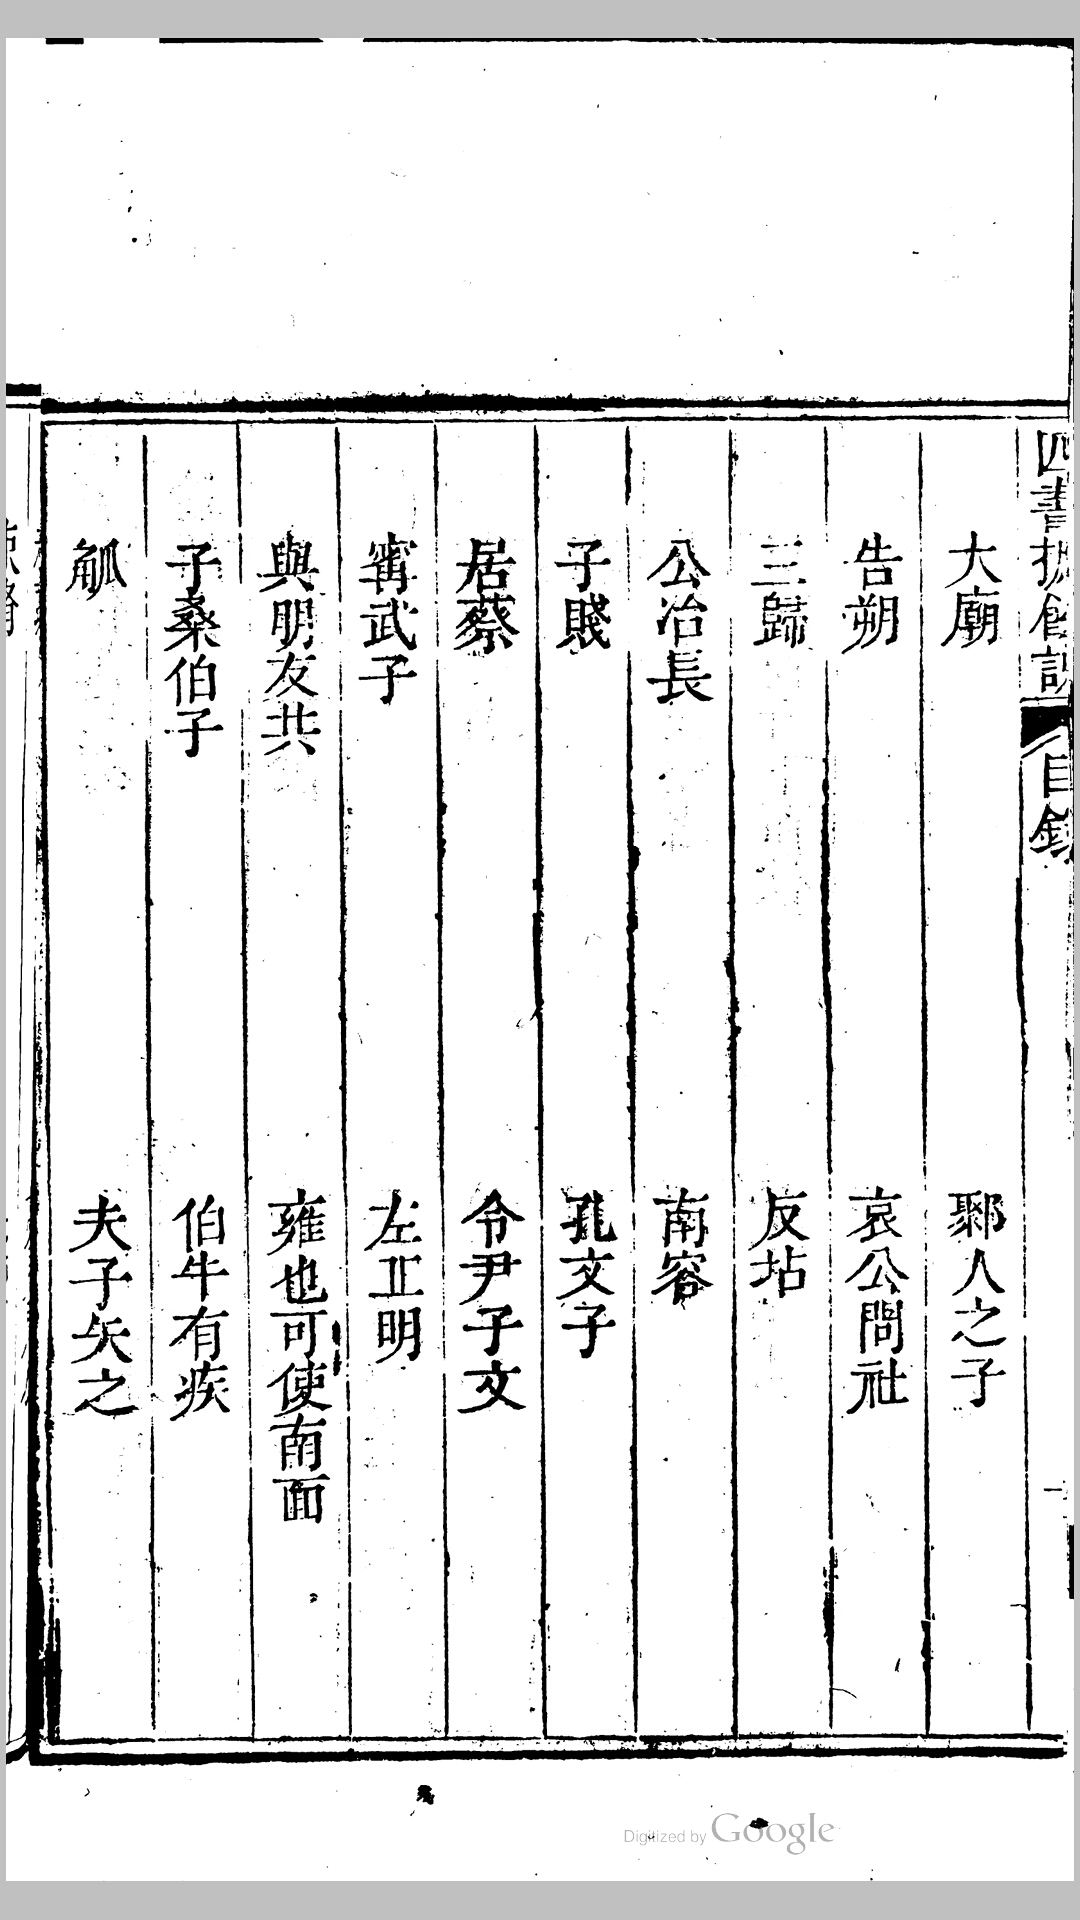 四書摭餘說
目錄
一
大廟
鄹人之子
告朔
哀公問社
三歸
反坫
公冶長
南容
子賤
孔文子
居蔡
令尹子文
甯武子
左丘明
與朋友共
雍也可使南面
子桑伯子
伯牛有疾
觚
夫子矢之
Digitized by Google